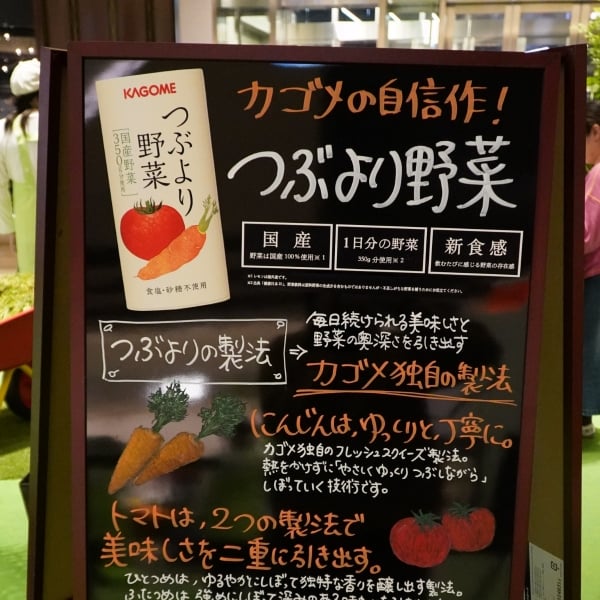 KAGOME
つぶより
野菜
国産野菜
350g分使用
食塩・砂糖不使用
カゴメの自信作!
つぶより野菜
国産
野菜は国産100%使用※1
1日分の野菜
350g分使用※2
新食感
飲むたびに感じる野菜の存在感
つぶよりの製法
⇒
毎日続けられる美味しさと
野菜の奥深さを引き出す
カゴメ独自の製法
にんじんは,ゆっくりと,丁寧に。
カゴメ独自のフレッシュスクイーズ製法。
熱をかけずに「やさしくゆっくりつぶしながら」
しぼっていく技術です。
トマトは,2つの製法で
美味しさを二重に引き出す。
ひとつめは,ゆるやかにしぼて独特な香りを醸し出す製法。